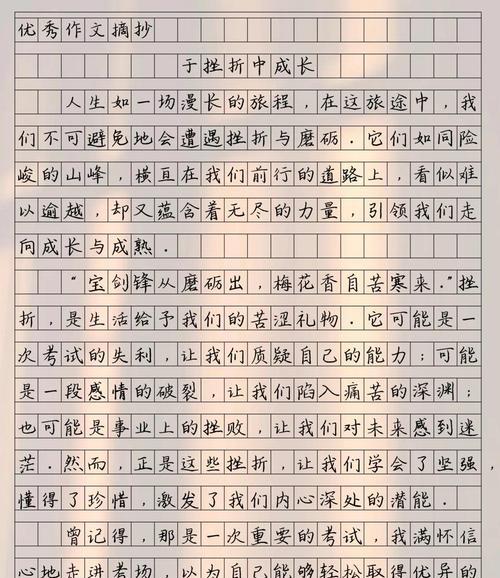 优秀作文摘抄
于挫折中成长
人生如一场漫长的旅程，在这旅途中，我
们不可避免地会遭遇挫折与磨砺．它们如同险
峻的山峰，横亘在我们前行的道路上，看似难
以逾越，却又蕴含着无尽的力量，引领我们走
向成长与成熟．
“宝剑锋从磨砺出，梅花香自苦寒来．”挫
折，是生活给予我们的苦涩礼物．它可能是一
次考试的失利，让我们质疑自己的能力；可能
是一段感情的破裂，让我们陷入痛苦的深渊；
也可能是事业上的挫败，让我们对未来感到迷
茫．然而，正是这些挫折，让我们学会了坚强，
懂得了珍惜，激发了我们内心深处的潜能．
曾记得，那是一次重要的考试，我满怀信
心地走进考场，以为自己能够轻松取得优异的